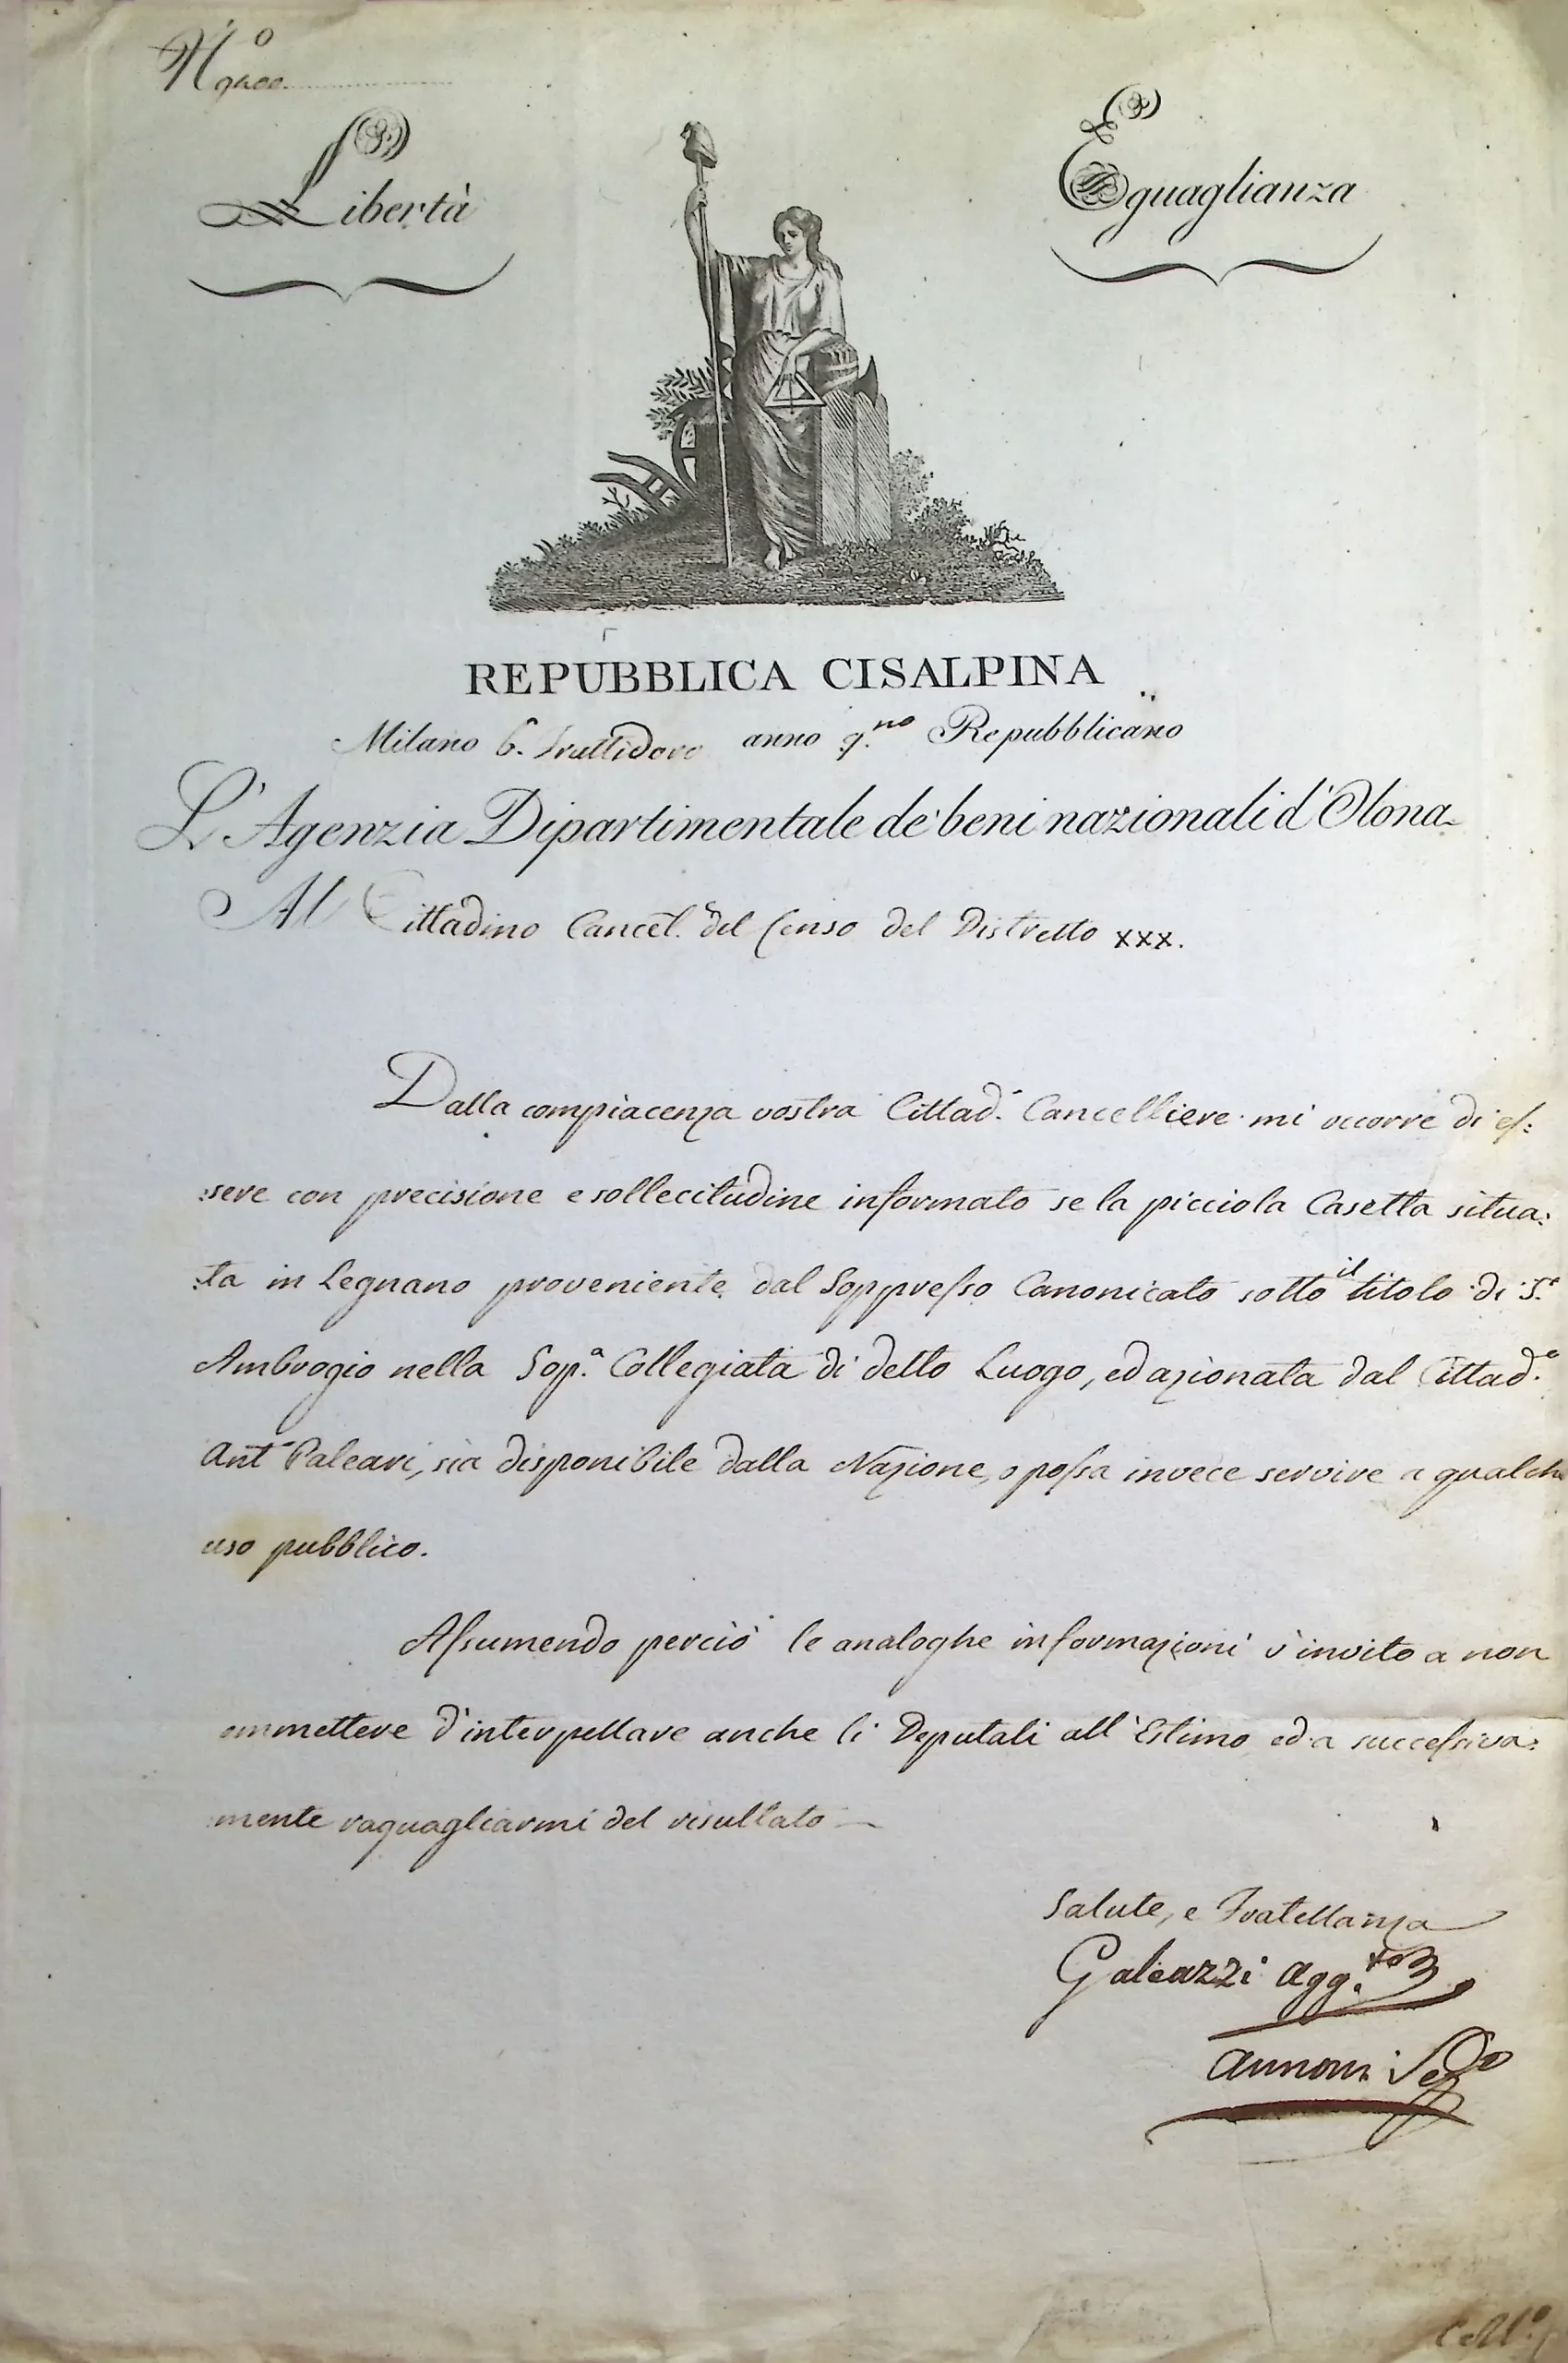 N.º
Libertà
Eguaglianza
REPUBBLICA CISALPINA
Milano 6. Fruttidoro anno 9.no Repubblicano
L'Agenzia Dipartimentale de' beni nazionali d'Olona
Al Cittadino Cancel.e del Censo del Distretto XXX.
Dalla compiacenza vostra Cittad.o Cancelliere mi occorre di es:
:sere con precisione e sollecitudine informato se la picciola Casetta situa:
:ta in Legnano proveniente dal Soppresso Canonicato sotto il titolo di S.t
Ambrogio nella Sop.a Collegiata di detto Luogo, ed azionata dal Cittad.o
Ant.o Paleari, sia disponibile dalla Nazione, o possa invece servire a qualche
uso pubblico.
Assumendo perciò le analoghe informazioni v'invito a non
ommettere d'interpellare anche li Deputati all'Estimo ed a successiva:
:mente raguagliarmi del risultato —
Salute, e Fratellanza
Galeazzi Agg.to
Annoni Seg.o